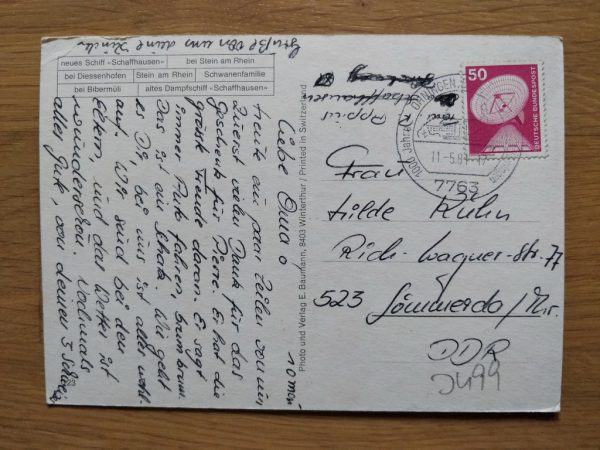 neues Schiff «Schaffhausen» bei Stein am Rhein
bei Diessenhofen Stein am Rhein Schwanenfamilie
bei Bibermüli altes Dampfschiff «Schaffhausen»
Liebe Oma!
heute ein paar Zeilen von mir
Zuerst vielen Dank für das
Geschenk für Pierre. Er hat die
größte Freude daran. Er sagt
immer Auto fahren, brum brum.
Das ist ein Schatz. Wie geht
es Dir, bei uns ist alles wohl-
auf. Wir sind bei den
Eltern, und das Wetter ist
wunderschön. Nochmals
alles Gute, von deinen 3
Grüße von uns deine Kinder
Photo und Verlag E. Baumann, 8403 Winterthur / Printed in Switzerland
Schaffhausen
50
DEUTSCHE BUNDESPOST
1000 Jahre ÖHNINGEN
7763
Frau
Hilde Kuhn
Rich.-Wagner-Str. 77
523 Sömmerda/Thr.
DDR
J499